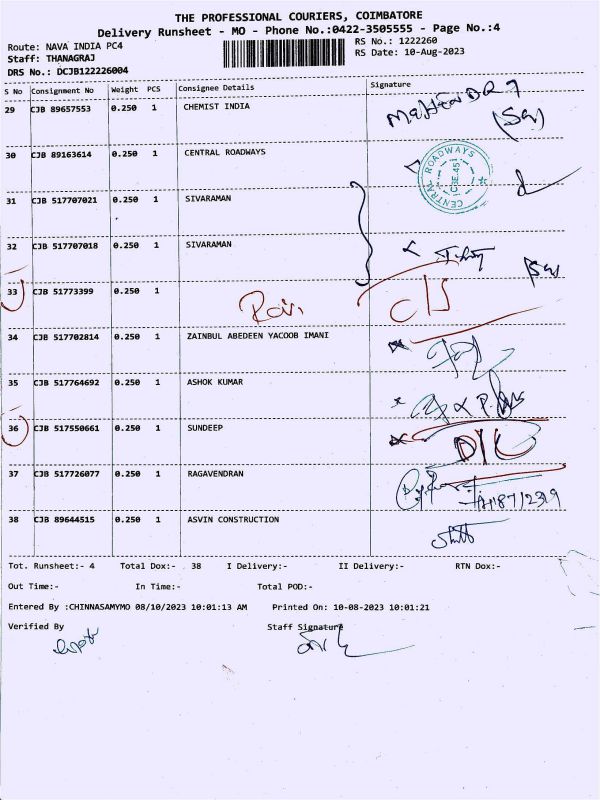 THE PROFESSIONAL COURIERS, COIMBATORE
Delivery Runsheet - MO - Phone No.:0422-3505555 - Page No.:4
Route: NAVA INDIA PC4
RS No.: 1222260
Staff: THANAGRAJ
RS Date: 10-Aug-2023
DRS No.: DCJB122226004
S No Consignment No Weight PCS Consignee Details Signature
29 CJB 89657553 0.250 1 CHEMIST INDIA
30 CJB 89163614 0.250 1 CENTRAL ROADWAYS
CENTRAL ROADWAYS
31 CJB 517707021 0.250 1 SIVARAMAN
32 CJB 517707018 0.250 1 SIVARAMAN
33 CJB 51773399 0.250 1
34 CJB 517702814 0.250 1 ZAINBUL ABEDEEN YACOOB IMANI
35 CJB 517764692 0.250 1 ASHOK KUMAR
36 CJB 517550661 0.250 1 SUNDEEP
37 CJB 517726077 0.250 1 RAGAVENDRAN
38 CJB 89644515 0.250 1 ASVIN CONSTRUCTION
Tot. Runsheet:- 4 Total Dox:- 38 I Delivery:- II Delivery:- RTN Dox:-
Out Time:- In Time:- Total POD:-
Entered By :CHINNASAMYMO 08/10/2023 10:01:13 AM Printed On: 10-08-2023 10:01:21
Verified By Staff Signature